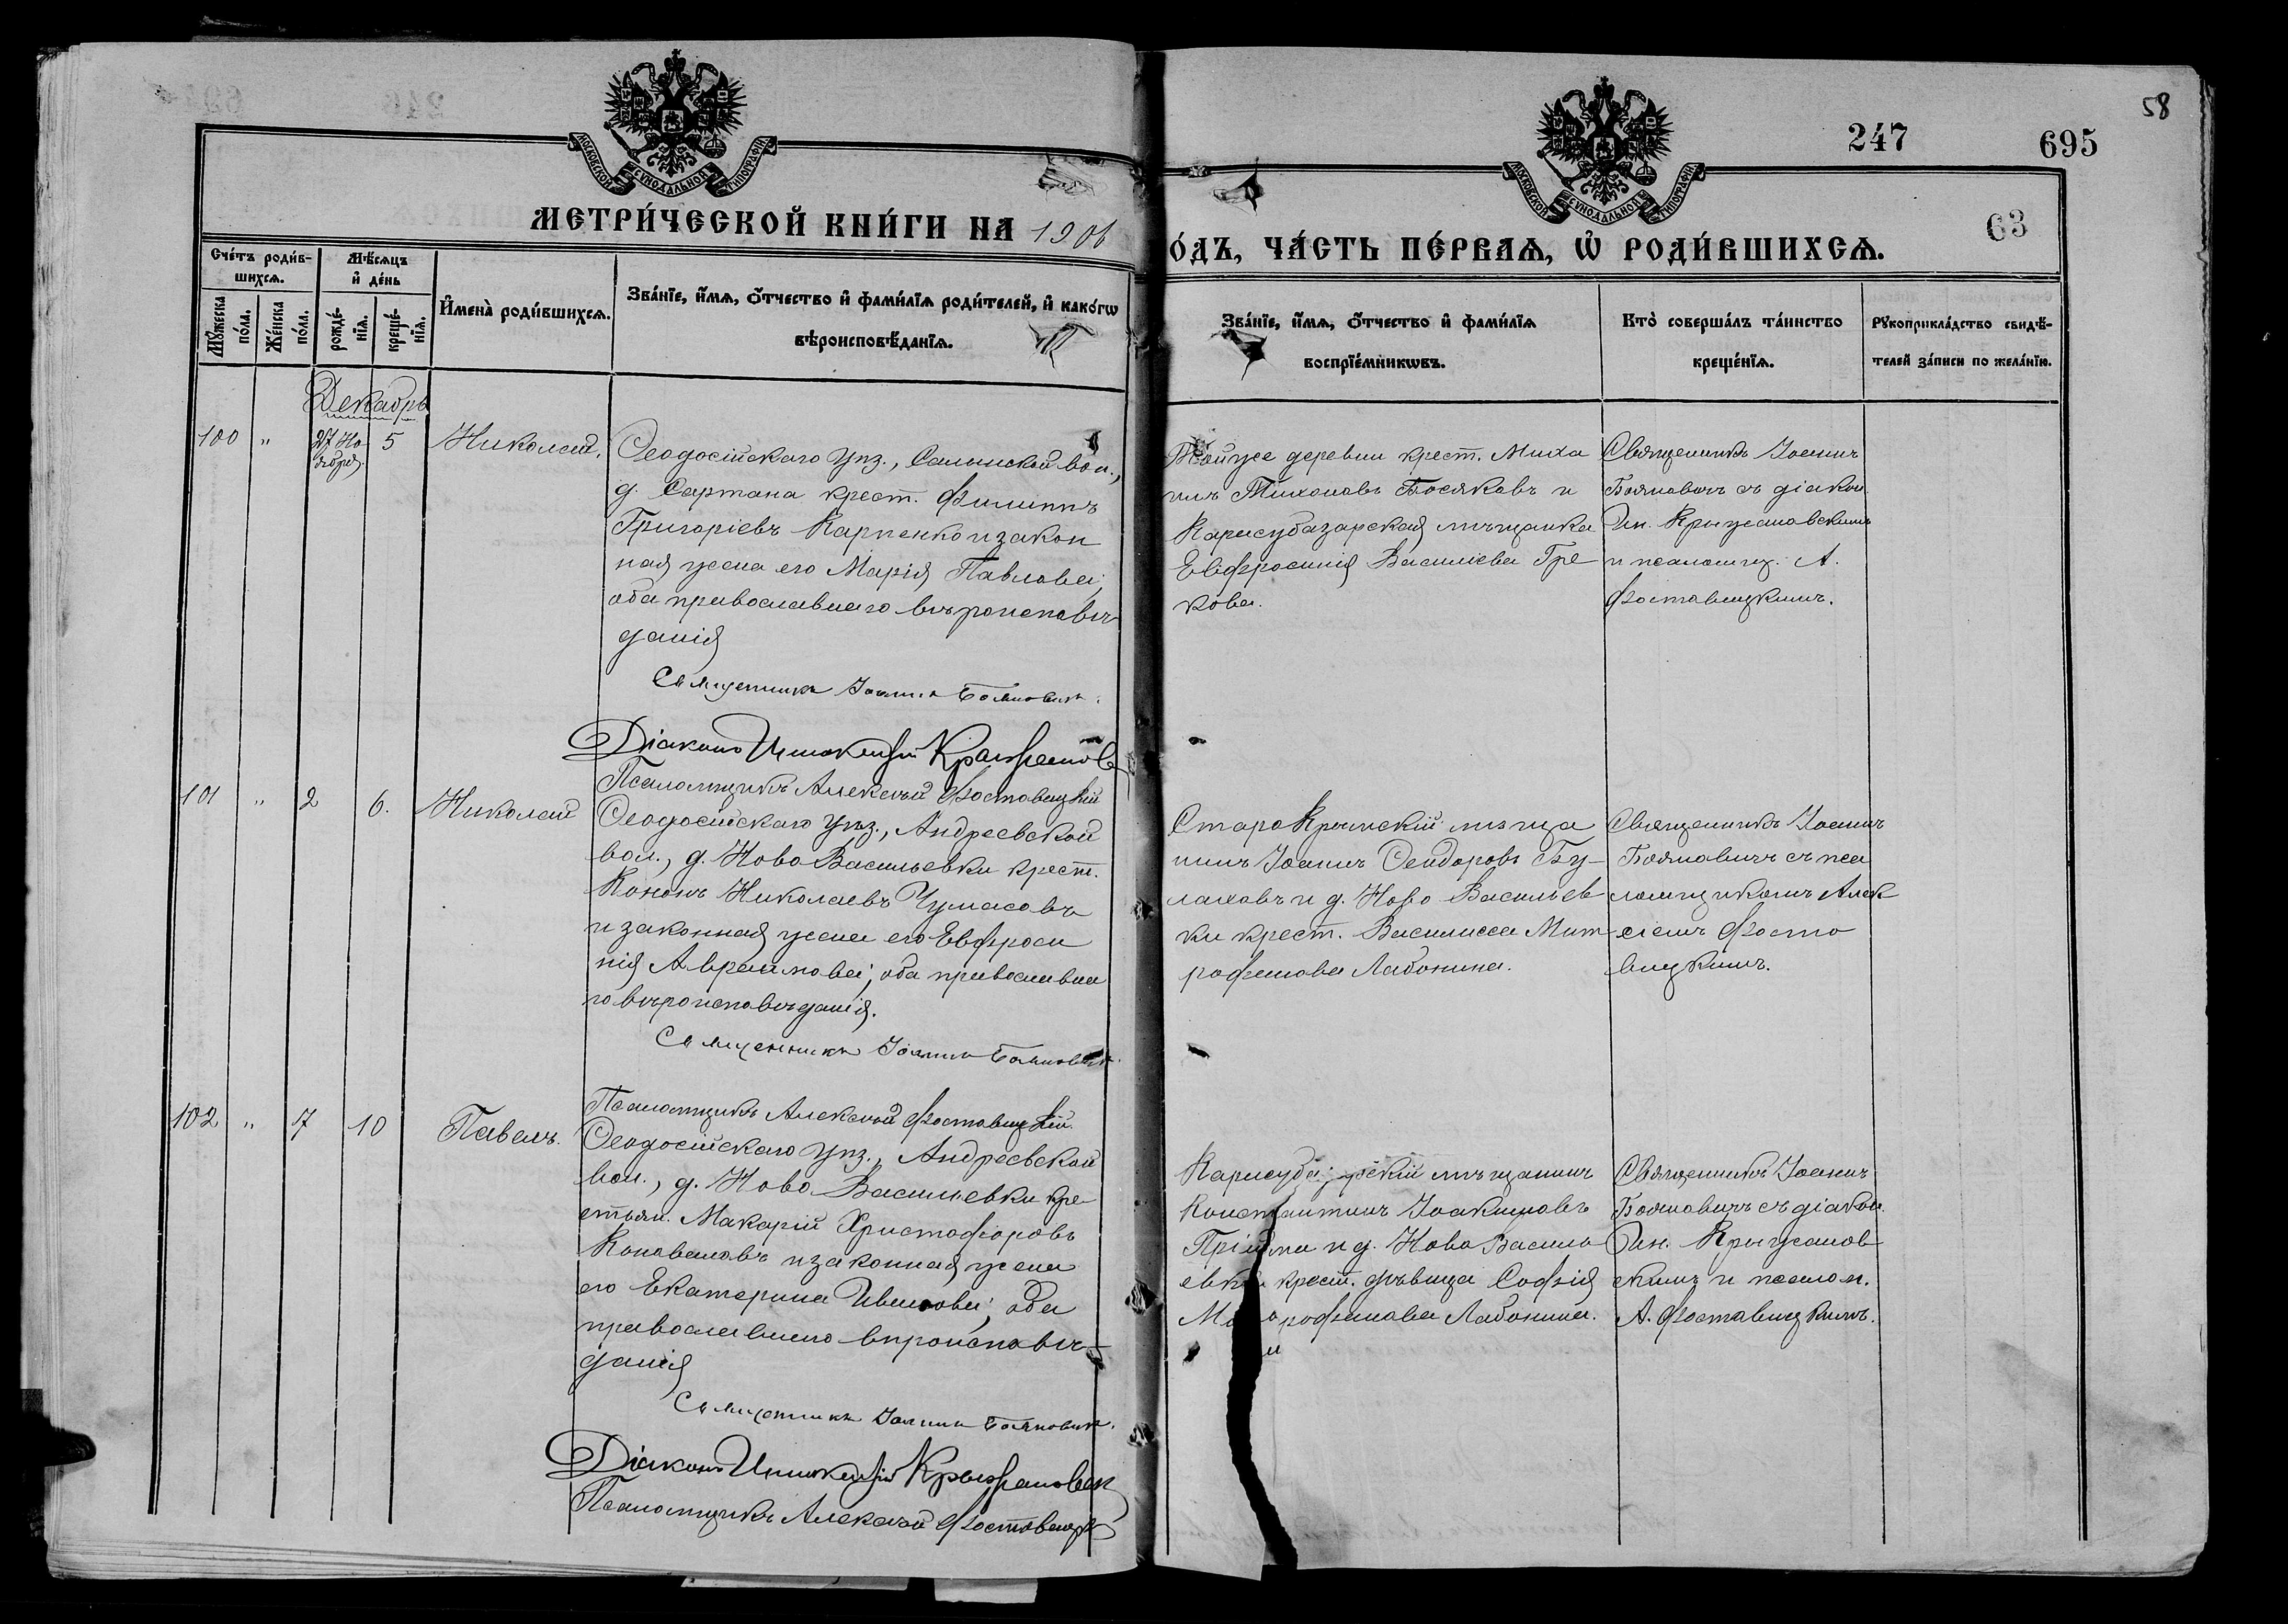 58
247
695
63
МОСКОВСКОЙ СѴНОДАЛЬНОЙ ТИПОГРАФІИ
МОСКОВСКОЙ СѴНОДАЛЬНОЙ ТИПОГРАФІИ
МЕТРИ́ЧЕСКОЙ КНИ́ГИ НА 1906
О́ДЪ, ЧА́СТЬ ПЕ́РВАѦ, Ѡ҆ РОДИ́ВШИХСѦ.
Сче́тъ роди́в-
шихсѧ.
Мѣ́сѧцъ
и҆ де́нь
Мꙋ́жеска
по́ла.
Же́нска
по́ла.
рожде́-
нїѧ.
креще́-
нїѧ.
И҆мена̀ роди́вшихсѧ.
Зва́нїе, и҆́мѧ, ѻ҆́тчество и҆ фами́лїѧ роди́телей, и҆ како́гѡ
вѣроисповѣ́данїѧ.
Зва́нїе, и҆́мѧ, ѻ҆́тчество и҆ фами́лїѧ
воспрїе́мникѡвъ.
Кто̀ соверша́лъ та́инство
креще́нїѧ.
Рꙋкоприкла́дство свидѣ́-
телей за́писи по жела́нїю.
Декабрь
100 " 27 Но-
ября. 5 Николай.
Ѳеодосійскаго уѣз., Салынской вол.,
д. Сартана крест. Филиппъ
Григоріевъ Карпенко и закон
ная жена его Марія Павлова;
оба православнаго вѣроисповѣ-
данія
Священникъ Іоаннъ Бояновичъ.
Діаконъ Иннокентій Крыжановск
Псаломщикъ Алексѣй Фостовицкій
Тойже деревни крест. Миха
илъ Тихоновъ Босяковъ и
Карасубазарская мѣщанка
Евфросинія Василіева Гре
кова.
Священникъ Іоаннъ
Бояновичъ съ діакон.
Ин. Крыжановскимъ
и псаломщ. А.
Фоставицкимъ.
101 " 2 6. Николай
Ѳеодосійскаго уѣз., Андреевской
вол., д. Ново Васильевки крест.
Кононъ Николаевъ Чумасовъ
и законная жена его Евфроси
нія Авраамова; оба православна
го вѣроисповѣданія.
Священникъ Іоаннъ Бояновичъ.
Псаломщикъ Алексѣй Фостовицкій.
Старо Крымскій мѣща
нинъ Іоаннъ Ѳеодоровъ Бу-
лаховъ и д. Ново Васильев
ки крест. Василисса Мит-
рофанова Лабонина.
Священникъ Іоаннъ
Бояновичъ съ пса
ломщикомъ Алек
сіемъ Фосто
вицкимъ.
102 " 7 10 Павелъ.
Ѳеодосійскаго уѣз., Андреевской
вол., д. Ново Васильевки кре-
стьян. Макарій Христофоровъ
Коноваловъ и законная жена
его Екатерина Иванова; оба
православнаго вѣроисповѣ-
данія
Священникъ Іоаннъ Бояновичъ.
Діаконъ Иннокентій Крыжановск
Псаломщикъ Алексѣй Фостовицк
Карасуба рскій мѣщанинъ
Константинъ Іоакимовъ
Прійма и д. Ново Василь
евки крест. дѣвица Софія
М рофанова Лабонина.
Священникъ Іоаннъ
Бояновичъ съ діакон.
Ин. Крыжанов-
скимъ и псалом.
А. Фоставицкимъ.